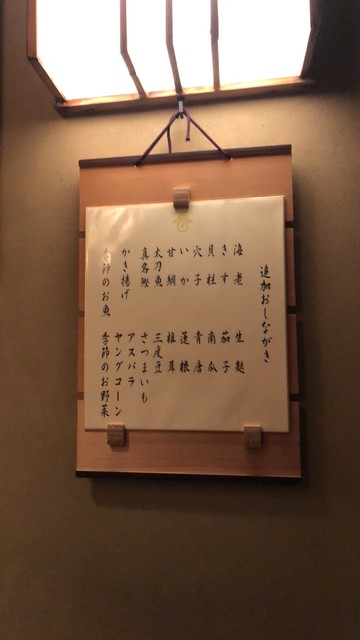 追加おしながき
海老
きす
貝柱
穴子
いか
甘鯛
太刀魚
真名鰹
かき揚げ
季節のお魚
生麩
茄子
南瓜
青唐
蓮根
椎茸
三度豆
さつまいも
アスパラ
ヤングコーン
季節のお野菜